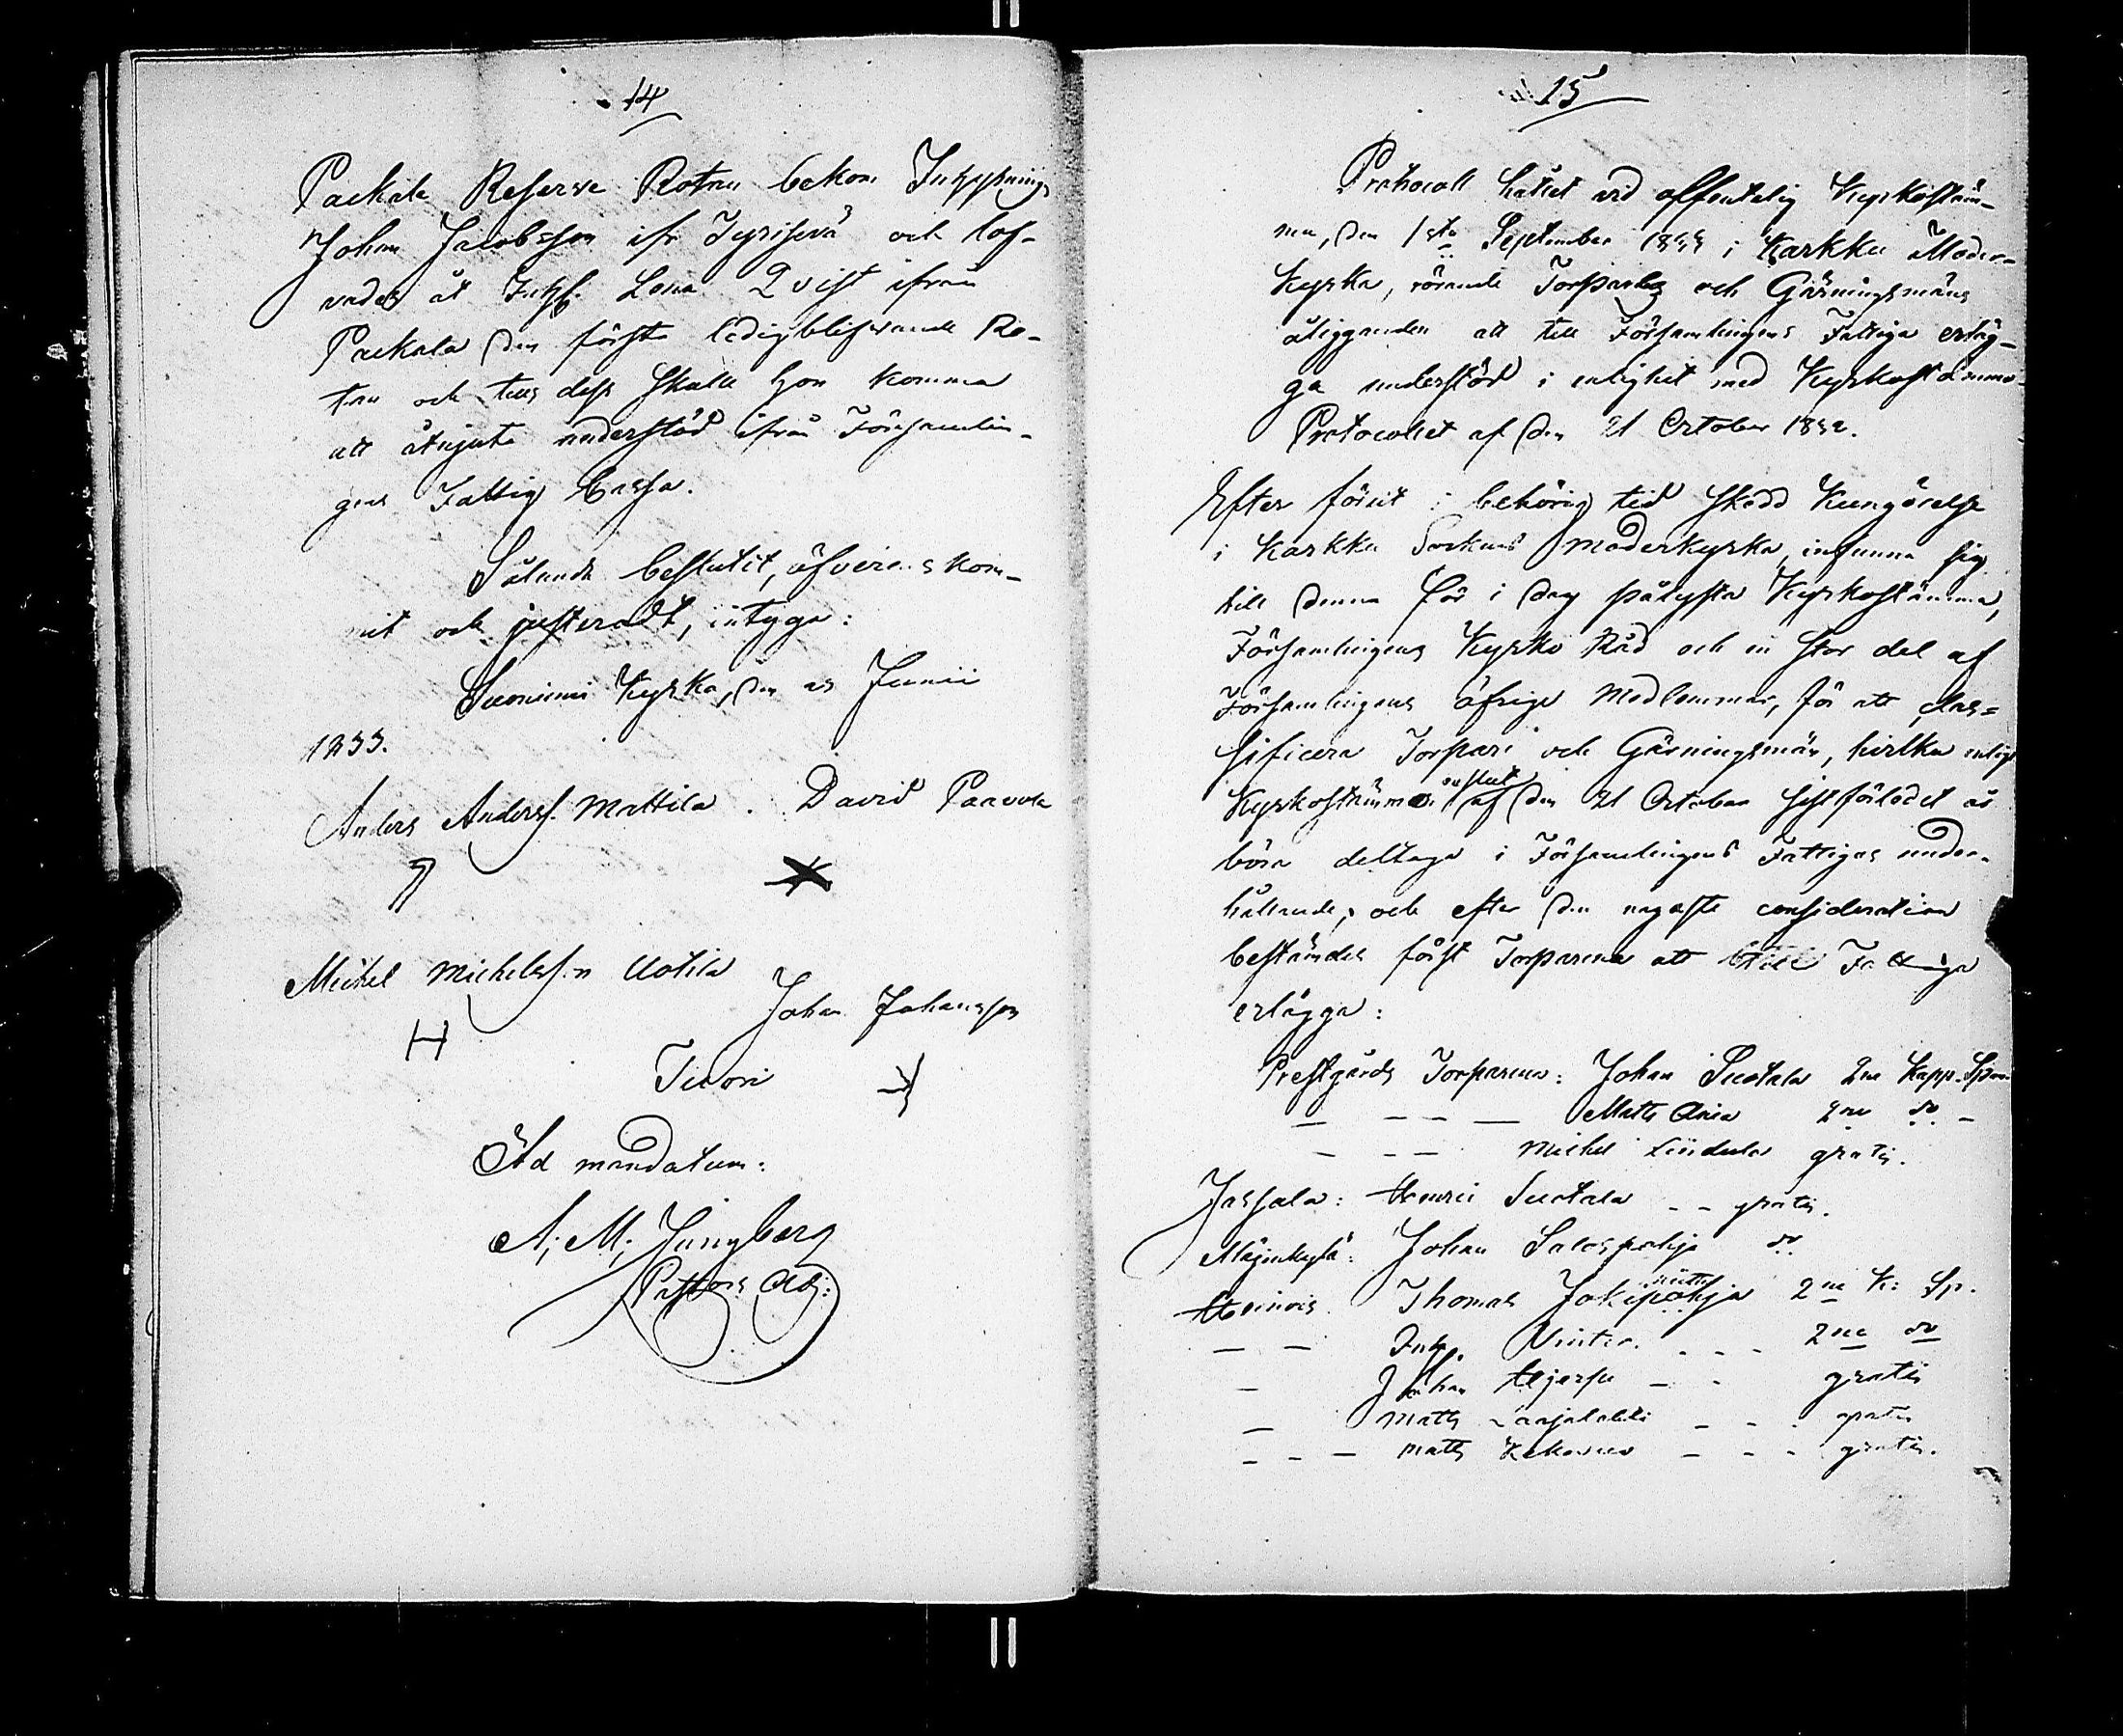 14
Packala Reserve Rotan bekom Inhysning
Johan Jacobsson ifr Tyrisevä och lof-
vades åt Inhs. Lena Qvist ifrån
Packala den första ledigblifvande Ro-
tan och tills dess skulle hon komma
att åtnjuta understöd ifrån Församlin-
gens Fattig Cassa.
Sålunda beslutit, öfverenskom-
mit och justeradt, intyga:
Suoniemi Kyrka, den Junii
1833.
Anders Anderss. Mattila. David Paavola
Michel Michelsson Uotila
Johan Johansson
H
Tuori
Ad mandatum:
A. M. Ljungberg
Pastors Adj:
15
Protocoll hållet vid offentelig Kyrkostäm-
ma, den 1sta September 1833 i Karkku Moder-
Kyrka, rörande Torpares och Gärningsmäns
åligganden att till Församlingens Fattiga erläg-
ga understöd i enlighet med Kyrkostämmo-
Protocollet af den 21 October 1832.
Efter förut i behörig tid skedd Kungörelse
i Karkku Sockens Moderkyrka, infunno sig
till denna för i dag pålysta Kyrkostämma,
Församlingens Kyrko Råd och en stor del af
Församlingens öfrige Medlemmar, för att clas=
sificera Torpare och Gärningsmän, hvilka enligt
Kyrkostämmo beslut af den 21 October sistförledet år
böra deltaga i Församlingens Fattigas under-
hållande; och efter den nogaste consideration
bestämdes först Torparena att till Fattiga
erlägga:
Prestgårds Torparena: Johan Suotala 2ne Kapp. Spm
— — — — Matts Ania 2ne do —
— — — Michel Lindula gratis.
Jassala: Henric Suotala - - gratis.
Mäginkylä: Johan Salospohja do
Heinois. Thomas Jokipohja 2ne K: Sp.
— — Inhs. Winter. - - - 2ne do
— Johan Hjerpe — - gratis
— Matts Laajalahti - - - gratis
- - — Matts Kekonen - - - gratis.